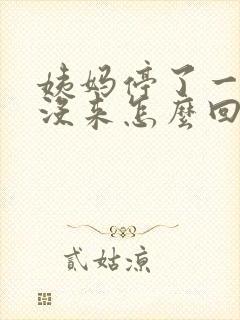 姨妈停了一
没来怎麼回
貳姑凉